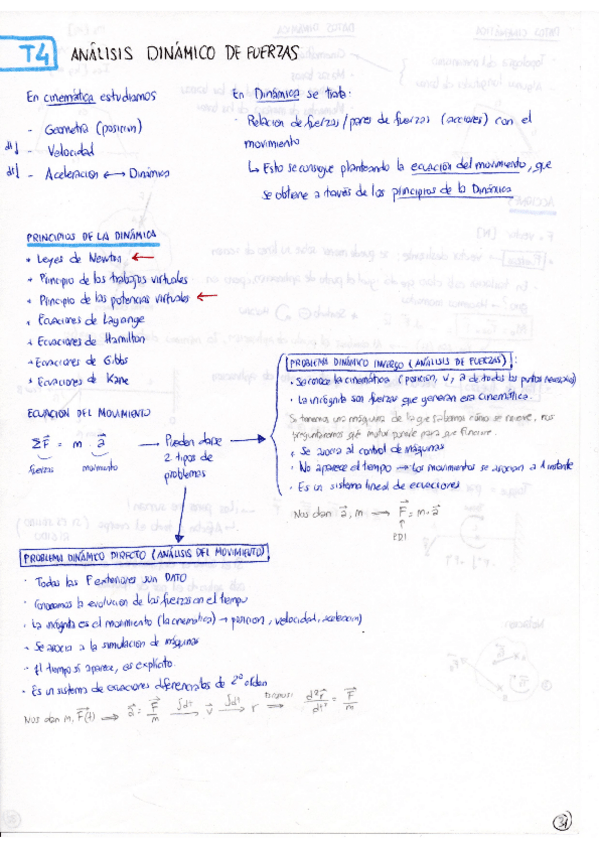 T4 ANÁLISIS DINÁMICO DE FUERZAS
En cinemática estudiamos
- Geometría (posición)
d/ - Velocidad
d/ - Aceleración ↔ Dinámica
En Dinámica se trata:
· Relación de fuerzas/pares de fuerzas (acciones) con el
movimiento
↳ Esto se consigue planteando la ecuación del movimiento, que
se obtiene a través de los principios de la Dinámica
PRINCIPIOS DE LA DINÁMICA
* Leyes de Newton ←
* Principio de los trabajos virtuales
* Principio de las potencias virtuales ←
* Ecuaciones de Lagrange
* Ecuaciones de Hamilton
* Ecuaciones de Gibbs
* Ecuaciones de Kane
ECUACIÓN DEL MOVIMIENTO
ΣF = m a → Pueden darse
2 tipos de
problemas
fuerzas movimiento
PROBLEMA DINÁMICO INVERSO (ANÁLISIS DE FUERZAS):
· Se conoce la cinemática (posición, v, a de todos los puntos necesarios)
· La incógnita son fuerzas que generan esa cinemática.
Si tenemos una máquina de la que sabemos cómo se mueve, nos
preguntaremos qué motor ponerle para que funcione.
· Se asocia al control de máquinas
· No aparece el tiempo → Los movimientos se asocian a 1 instante
· Es un sistema lineal de ecuaciones
Nos dan a, m → F = m·a
PDI
PROBLEMA DINÁMICO DIRECTO (ANÁLISIS DEL MOVIMIENTO)
· Todas las F exteriores son DATO
· Conocemos la evolución de las fuerzas en el tiempo
· La incógnita es el movimiento (la cinemática) → posición, velocidad, aceleración)
· Se asocia a la simulación de máquinas
· El tiempo sí aparece, es explícito.
· Es un sistema de ecuaciones diferenciales de 2º orden
Nos dan m, F(t) ⇒ a = F/m ∫dt→ v ∫dt→ r ⇒ d²r/dt² = F/m
31